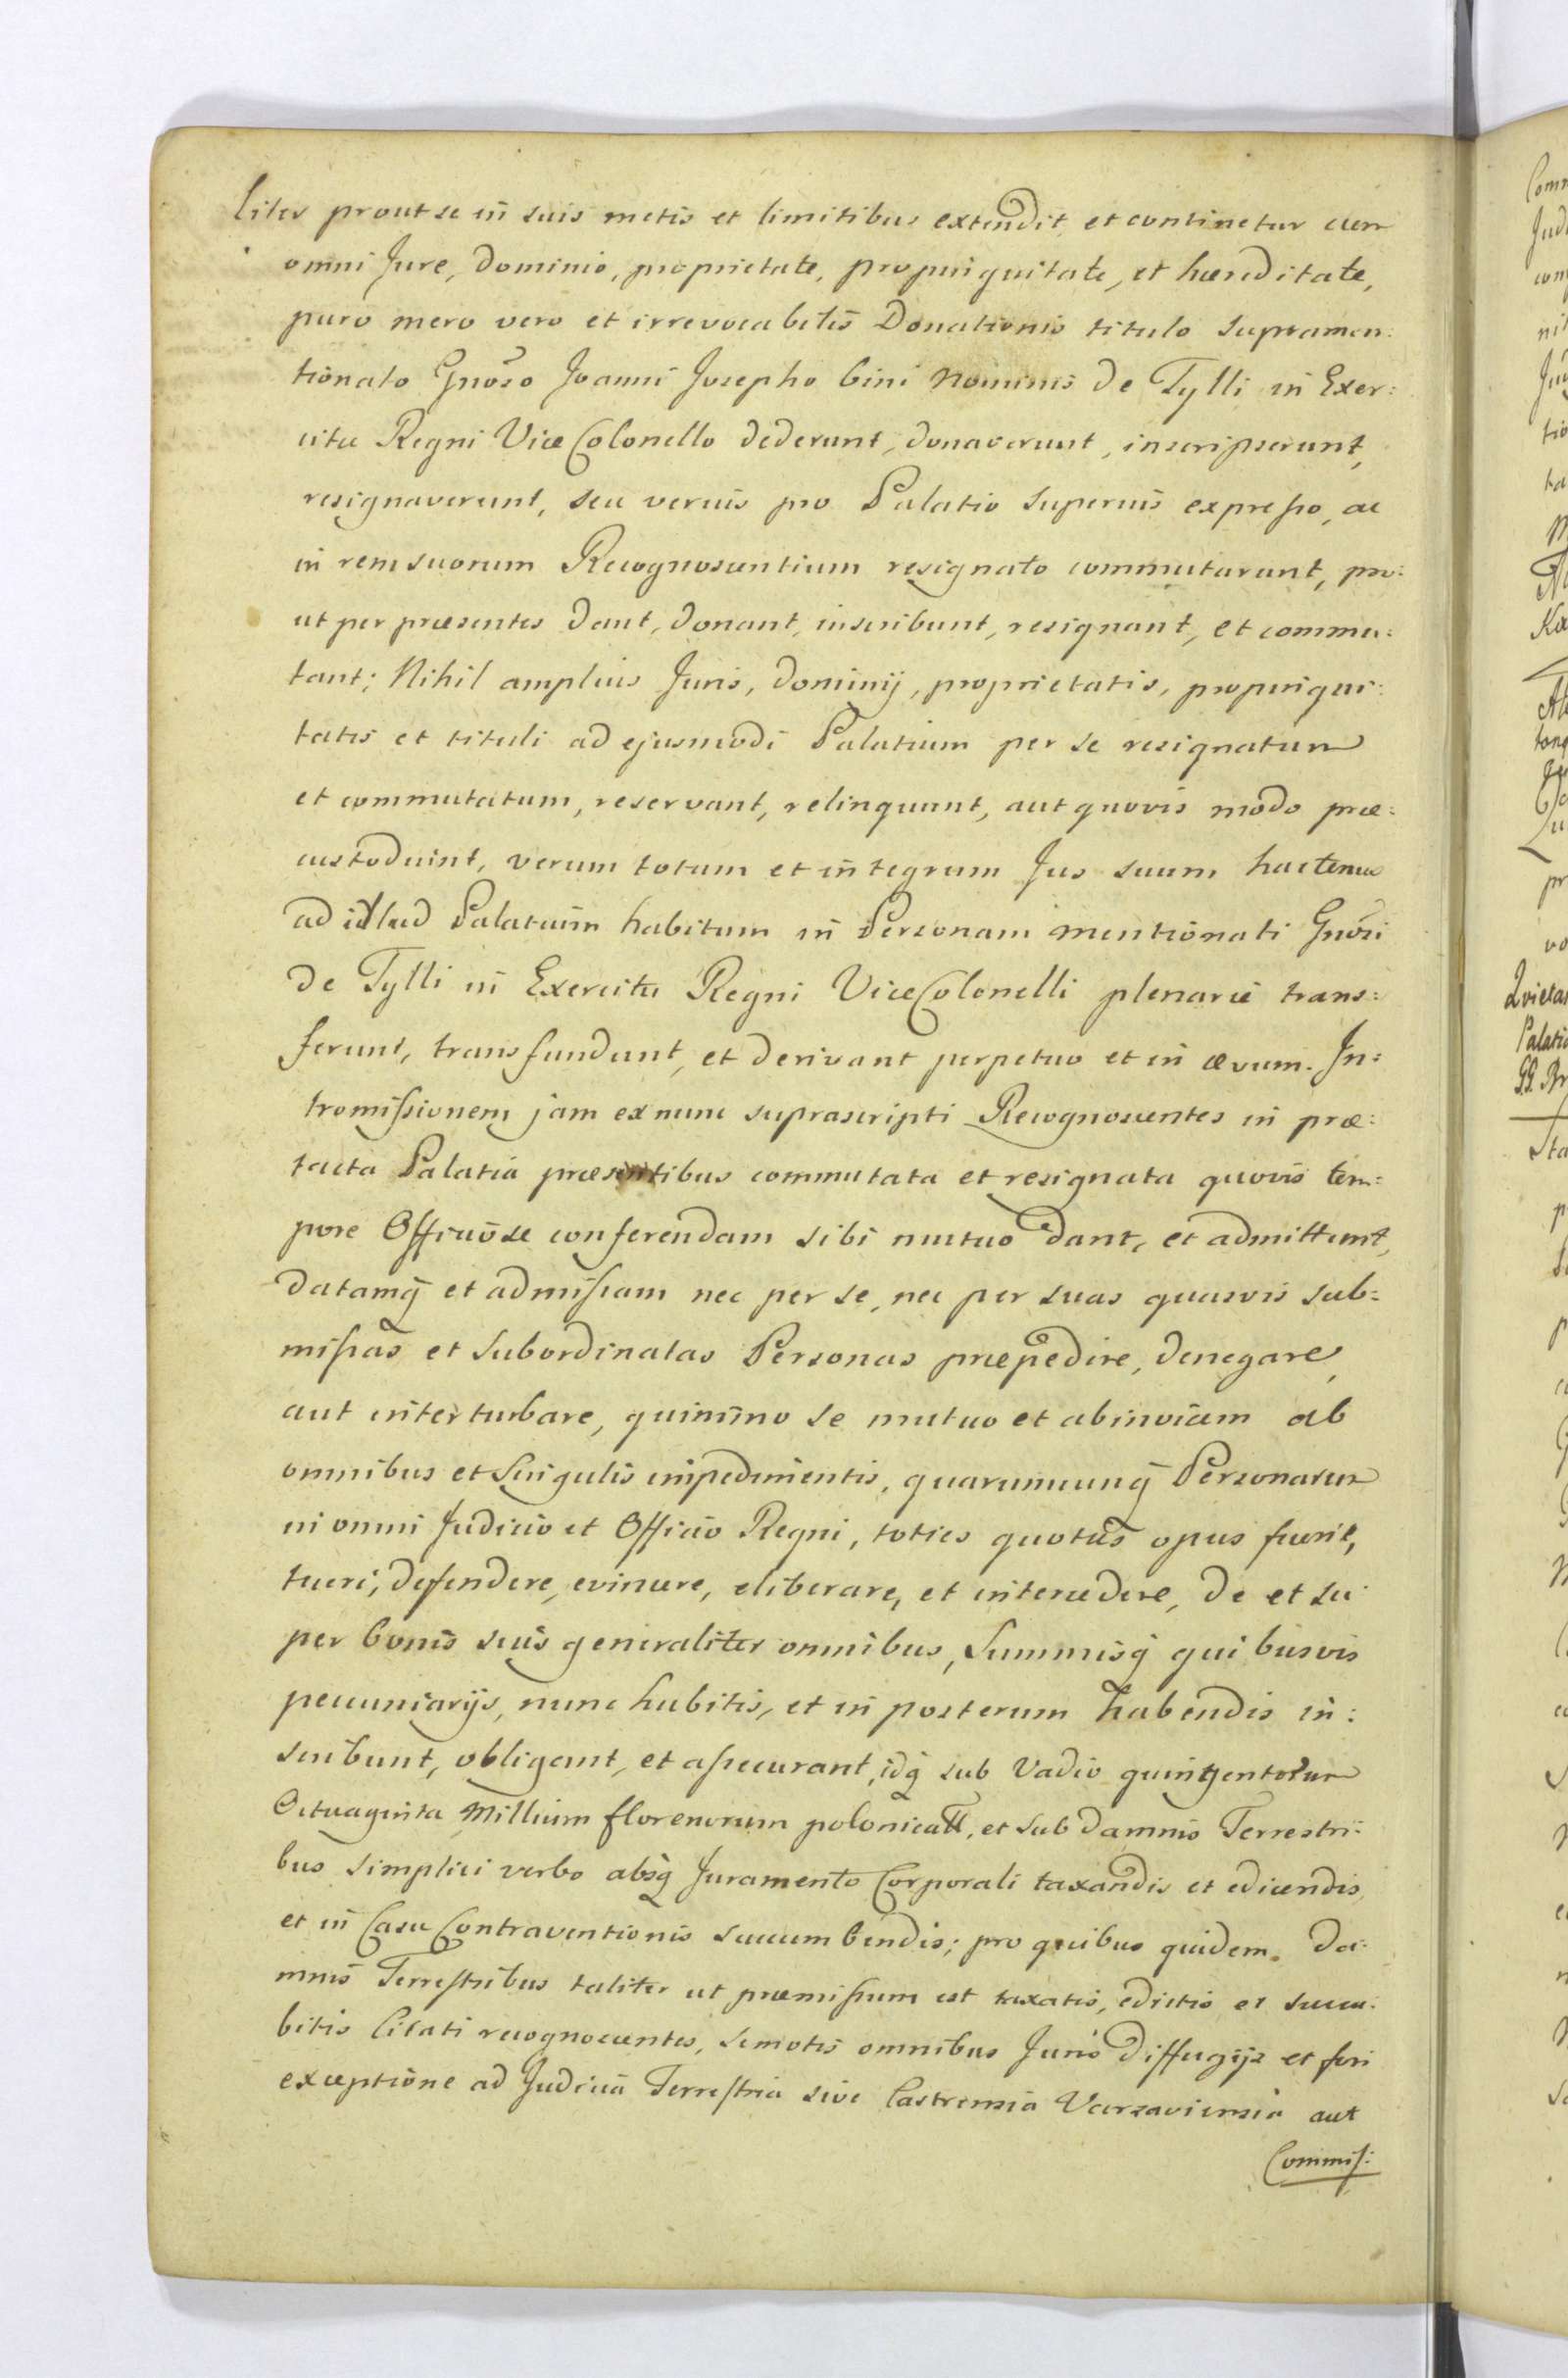 liter prout se in suis metis et limitibus extendit et continetur cum
omni Jure, Dominio, proprietate, propinquitate, et hæreditate,
puro mero vero et irrevocabilis Donationis titulo supramen:
tionato Gnoso Joanni Josepho bini Nominis de Tylli in Exer:
citu Regni Vice Colonello dederunt, donaverunt, inscripserunt,
resignaverunt, seu verius pro Palatio superius expresso, ac
in rem suorum Recognoscentium resignato commutarunt, pro:
ut per præsentes dant, donant, inscribunt, resignant, et commu:
tant; Nihil amplius Juris, dominij, proprietatis, propinqui:
tatis et tituli ad ejusmodi Palatium per se resignatum
et commutatum, reservant, relinquunt, aut quovis modo præ:
custodiunt, verum totum et integrum Jus suum hactenus
ad illud Palatium habitum in Personam mentionati Gnosi
de Tylli in Exercitu Regni ViceColonelli plenarie trans:
ferunt, transfundunt, et derivant perpetuo et in ævum. In:
tromissionem jam ex nunc suprascripti Recognoscentes in præ:
tacta Palatia præsentibus commutata et resignata quovis tem:
pore Officiose conferendam sibi mutuo dant, et admittunt,
datamq́ et admissam nec per se, nec per suas quasvis sub:
missas et subordinatas Personas præpedire, denegare,
aut interturbare, quinimo se mutuo et abinvicem ab
omnibus et singulis impedimentis, quarumcunq́ Personarum
in omni Judicio et Officio Regni, toties quoties opus fuerit,
tueri, defendere, evincere, eliberare, et intercedere, de et su:
per bonis suis generaliter omnibus, Summisq́ quibusvis
pecuniarijs, nunc habitis, et in posterum habendis in:
scribunt, obligant, et assecurant, idq́ sub Vadio quingentorum
Octuaginta Millium florenorum polonicall, et sub damnis Terrestri:
bus simplici verbo absq́ Juramento Corporali taxandis et edicendis,
et in Casu Contraventionis succumbendis; pro quibus quidem Da:
mnis Terrestribus taliter ut præmissum est taxatis, edictis et succu:
bitis Citati recognoscentes, semotis omnibus Juris diffugijs et fori
exceptione ad Judicia Terrestria sive Castrensia Varsaviensia aut
Commis: